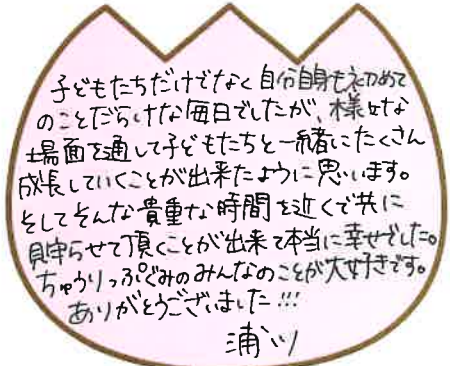 子どもたちだけでなく自分自身も初めて
のことだらけな毎日でしたが、様々な
場面を通して子どもたちと一緒にたくさん
成長していくことが出来たように思います。
そしてそんな貴重な時間を近くで共に
見守らせて頂くことが出来て本当に幸せでした。
ちゅうりっぷぐみのみんなのことが大好きです。
ありがとうございました!!!
浦川